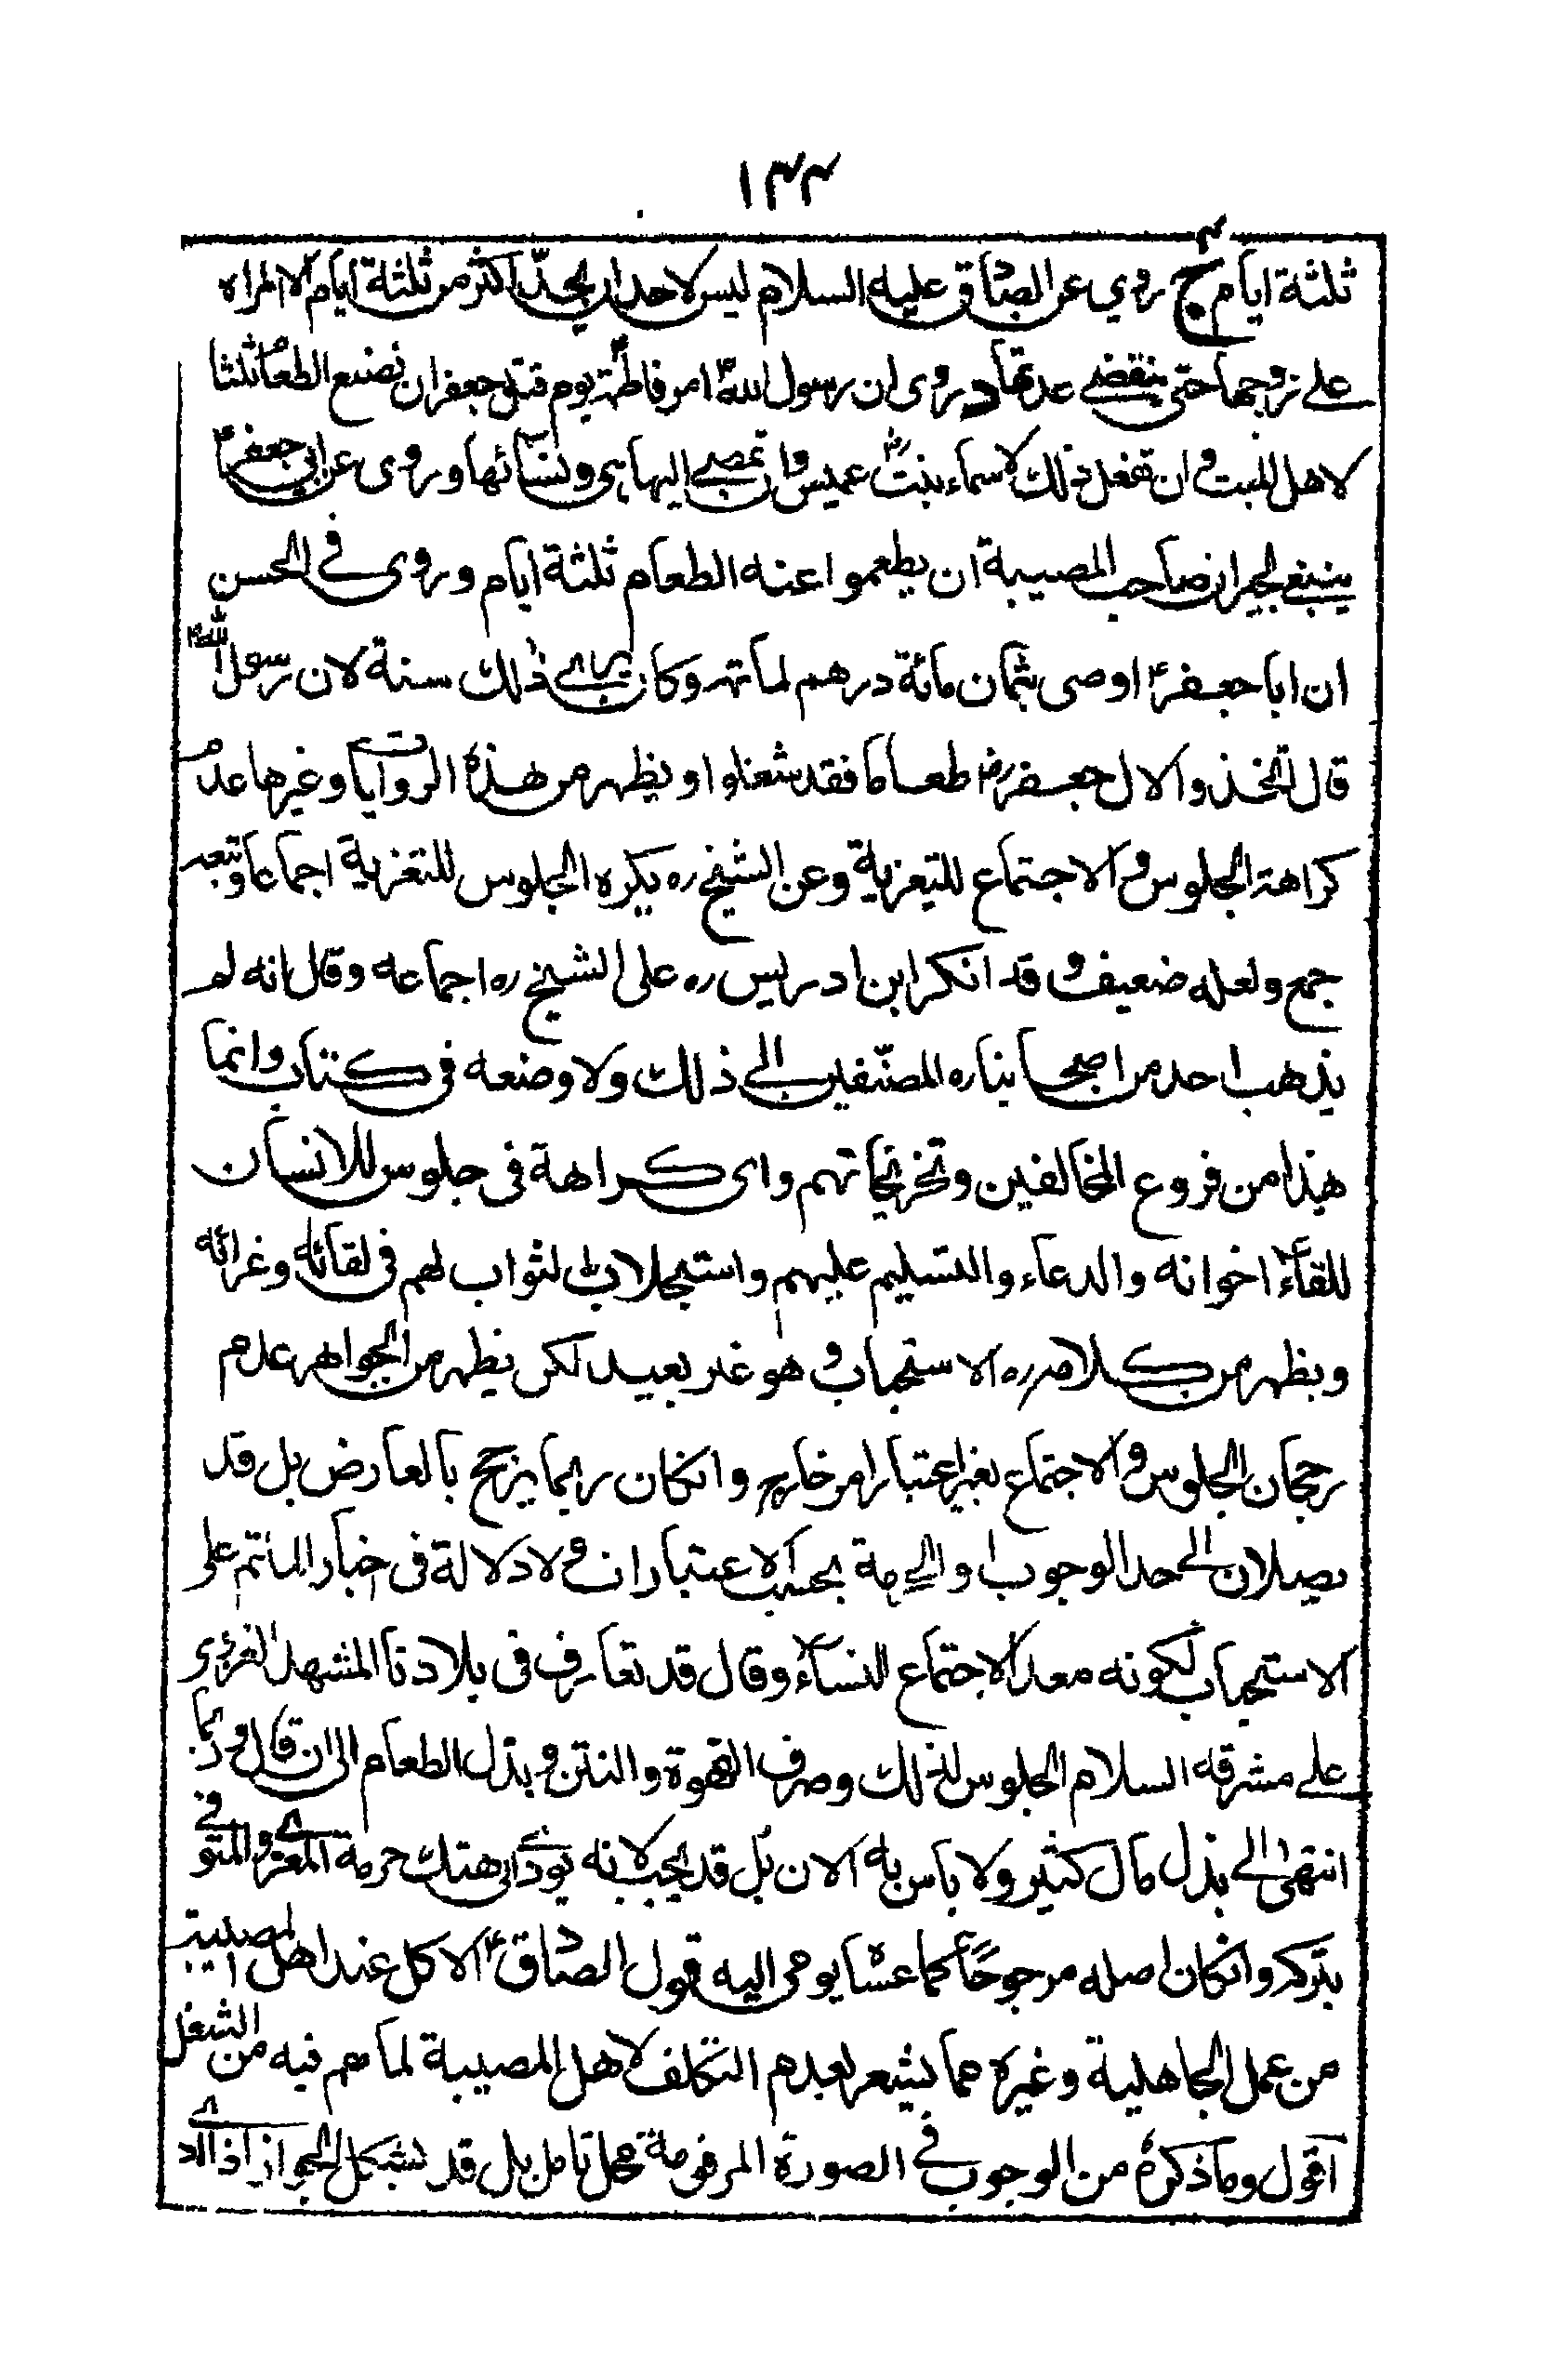 ١٤٤
ثلثة ايام ج روي عن الصادق عليه السلام ليس لاحد ان يحدّ اكثر من ثلثة ايام الا المراه
على زوجها حتى ينقضي عدتها د روى ان رسول الله ص امر فاطمة ع يوم قتل جعفر ان تصنع الطعام ثلثا
لاهل الميت و ان تفعل ذلك لاسماء بنت عميس رض وان تمضي اليها هي ونسائها وروى عن ابي جعفر ع
ينبغي لجيران صاحب المصيبة ان يطعموا عنه الطعام ثلثة ايام وروى في الحسن
ان ابا جعفر ع اوصى بثمان مائة درهم لماتمه وكان يرى ذلك سنة لان رسول الله ص
قال اتخذوا لال جعفر رض طعاما فقد شغلوا ويظهر من هذه الروايات وغيرها عدم
كراهة الجلوس و الاجتماع للتعزية وعن الشيخ ره يكره الجلوس للتعزية اجماعا وتبعه
جمع ولعله ضعيف و قد انكر ابن ادريس ره على الشيخ ره اجماعه وقال انه لم
يذهب احد من اصحابنا ره المصنّفين الى ذلك ولا وضعه في كتاب وانما
هذا من فروع المخالفين وتخريجاتهم واى كراهة في جلوس للانسان
للقاء اخوانه والدعاء والتسليم عليهم واستجلاب الثواب لهم في لقائه وعزائه
ويظهر من كلامه ره الاستحباب و هو غير بعيد لكن يظهر من الجواهر عدم
رجحان الجلوس و الاجتماع بغير اعتبار امر خارج وانكان ربما يرجح بالعارض بل قد
يصلان الى حد الوجوب او الحرمة بحسب الاعتبارات و لا دلالة في اخبار الماتم على
الاستحباب لكونه معد الاجتماع النساء وقال قد تعارف في بلادنا المشهد الغروي
على مشرفه السلام الجلوس لذلك وصرف القهوة والتتن و بذل الطعام الى ان قال و ربما
انتهى الى بذل مال كثير ولا باس به الان بل قد يجب لانه يودى الى هتك حرمة المعزى و المتوفى
بتركه وانكان اصله مرجوحًا كما عساه يومى اليه قول الصادق ع الاكل عند اهل المصيبة
من عمل الجاهلية وغيره مما يشعر بعدم التكلف لاهل المصيبة لما هم فيه من الشغل
اقول وما ذكره من الوجوب في الصورة المرقومة محل تامل بل قد يشكل الجواز اذا ادى